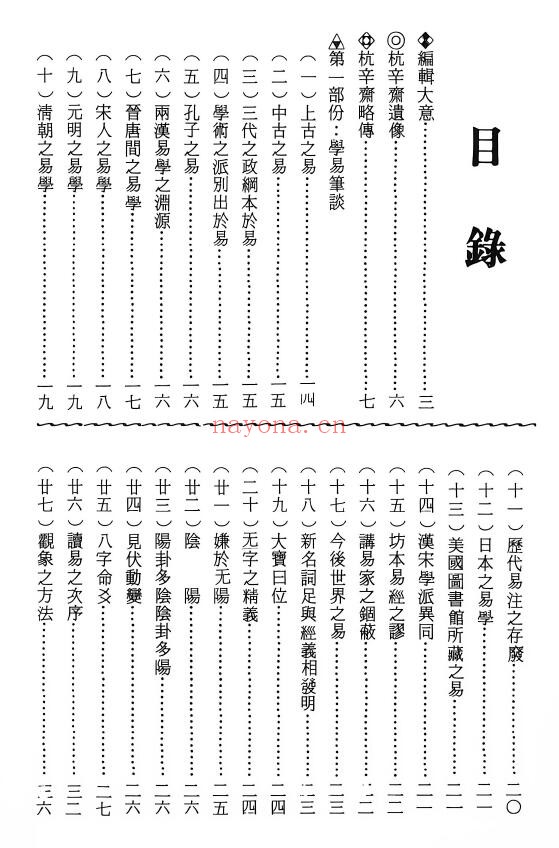 目錄
編輯大意 三
杭辛齋遺像 六
杭辛齋略傳 七
第一部份：學易筆談
（一）上古之易 一四
（二）中古之易 一五
（三）三代之政綱本於易 一五
（四）學術之派別出於易 一五
（五）孔子之易 一六
（六）兩漢易學之淵源 一六
（七）晉唐間之易學 一七
（八）宋人之易學 一八
（九）元明之易學 一九
（十）清朝之易學 一九
nayona.cn
（十一）歷代易注之存廢 二〇
（十二）日本之易學 二一
（十三）美國圖書館所藏之易 二一
（十四）漢宋學派異同 二一
（十五）坊本易經之謬 二二
（十六）講易家之錮蔽
（十七）今後世界之易 二三
（十八）新名詞足與經義相發明 二三
（十九）大寶曰位 二四
（二十）无字之精義 二四
（廿一）嫌於无陽 二五
（廿二）陰　陽 二六
（廿三）陽卦多陰陰卦多陽 二六
（廿四）見伏動變 二六
（廿五）八字命爻 二七
（廿六）讀易之次序 三二
（廿七）觀象之方法